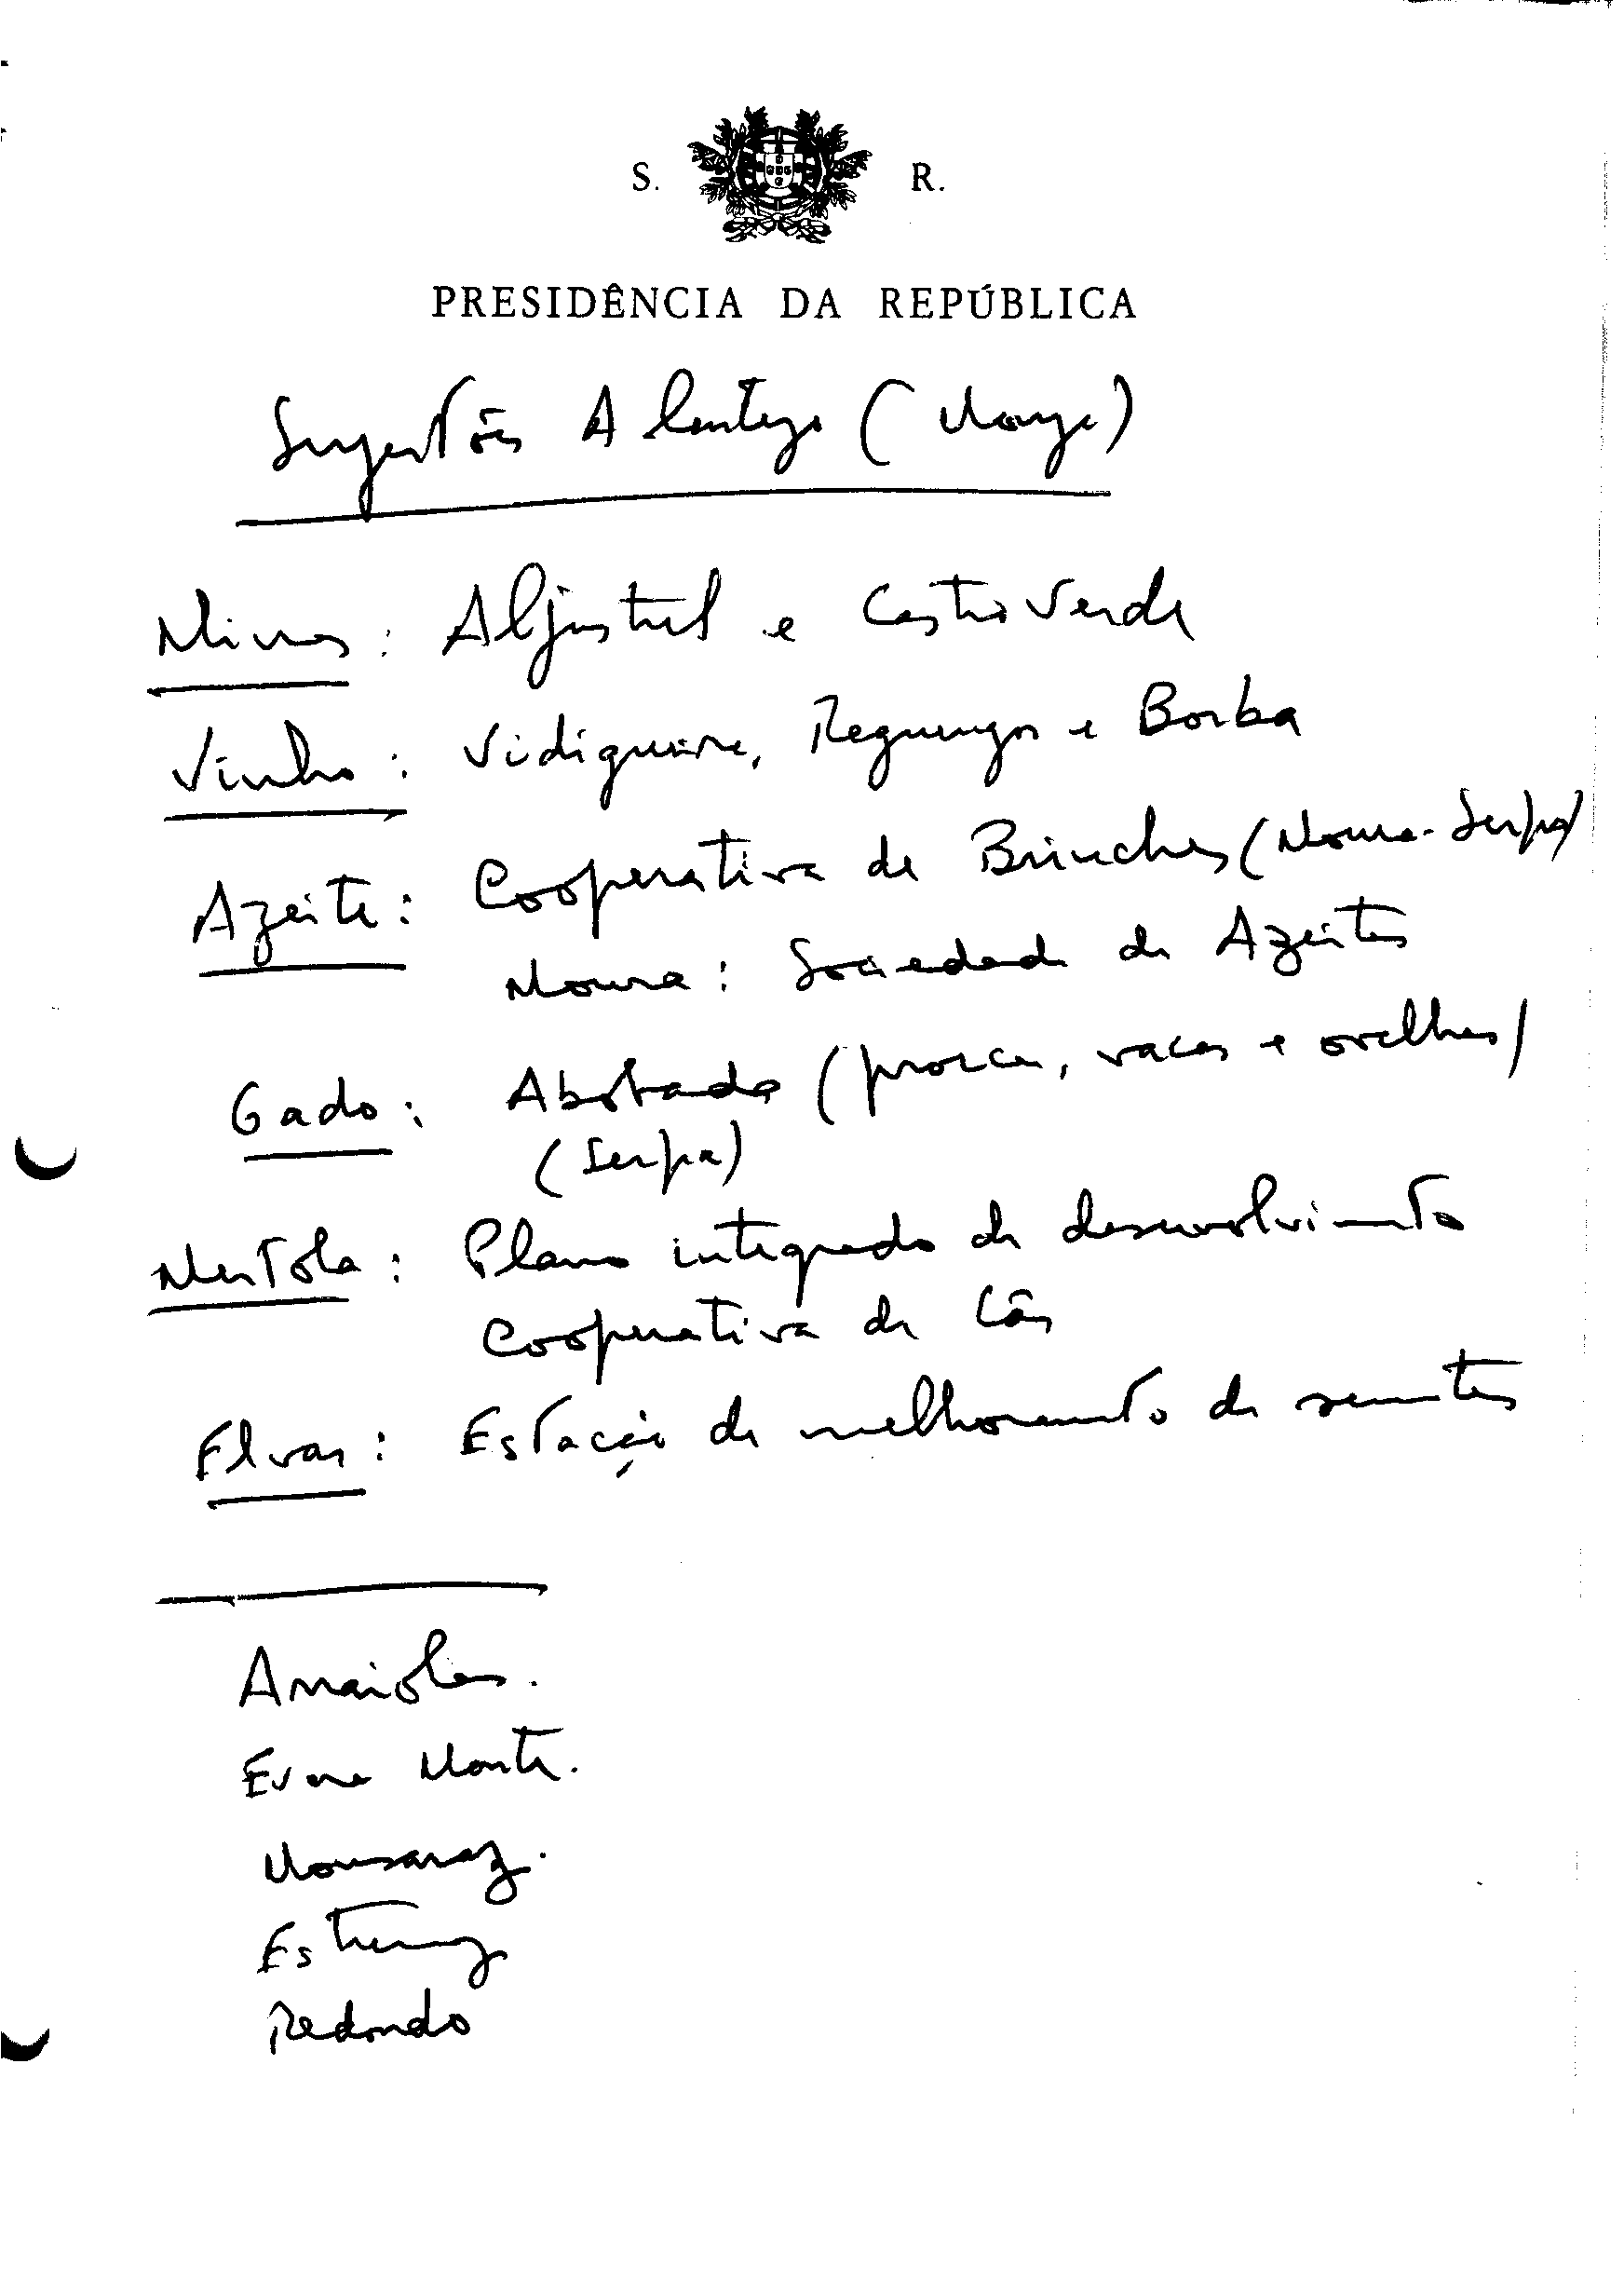 S. R.
PRESIDÊNCIA DA REPÚBLICA
Sugestões Alentejo (Monge)
Minas: Aljustrel e Castro Verde
Vinho: Vidigueira, Reguengos e Borba
Azeite: Cooperativa de Brinches (Moura-Serpa)
Moura: Sociedade de Azeites
Gado: Abobada (porcos, vacas e ovelhas)
(Serpa)
Mertola: Plano integrado de desenvolvimento
Cooperativa de Lãs
Elvas: Estação de melhoramento de sementes
Arraiolos.
Evora Monte.
Monsaraz.
Estremoz
Redondo